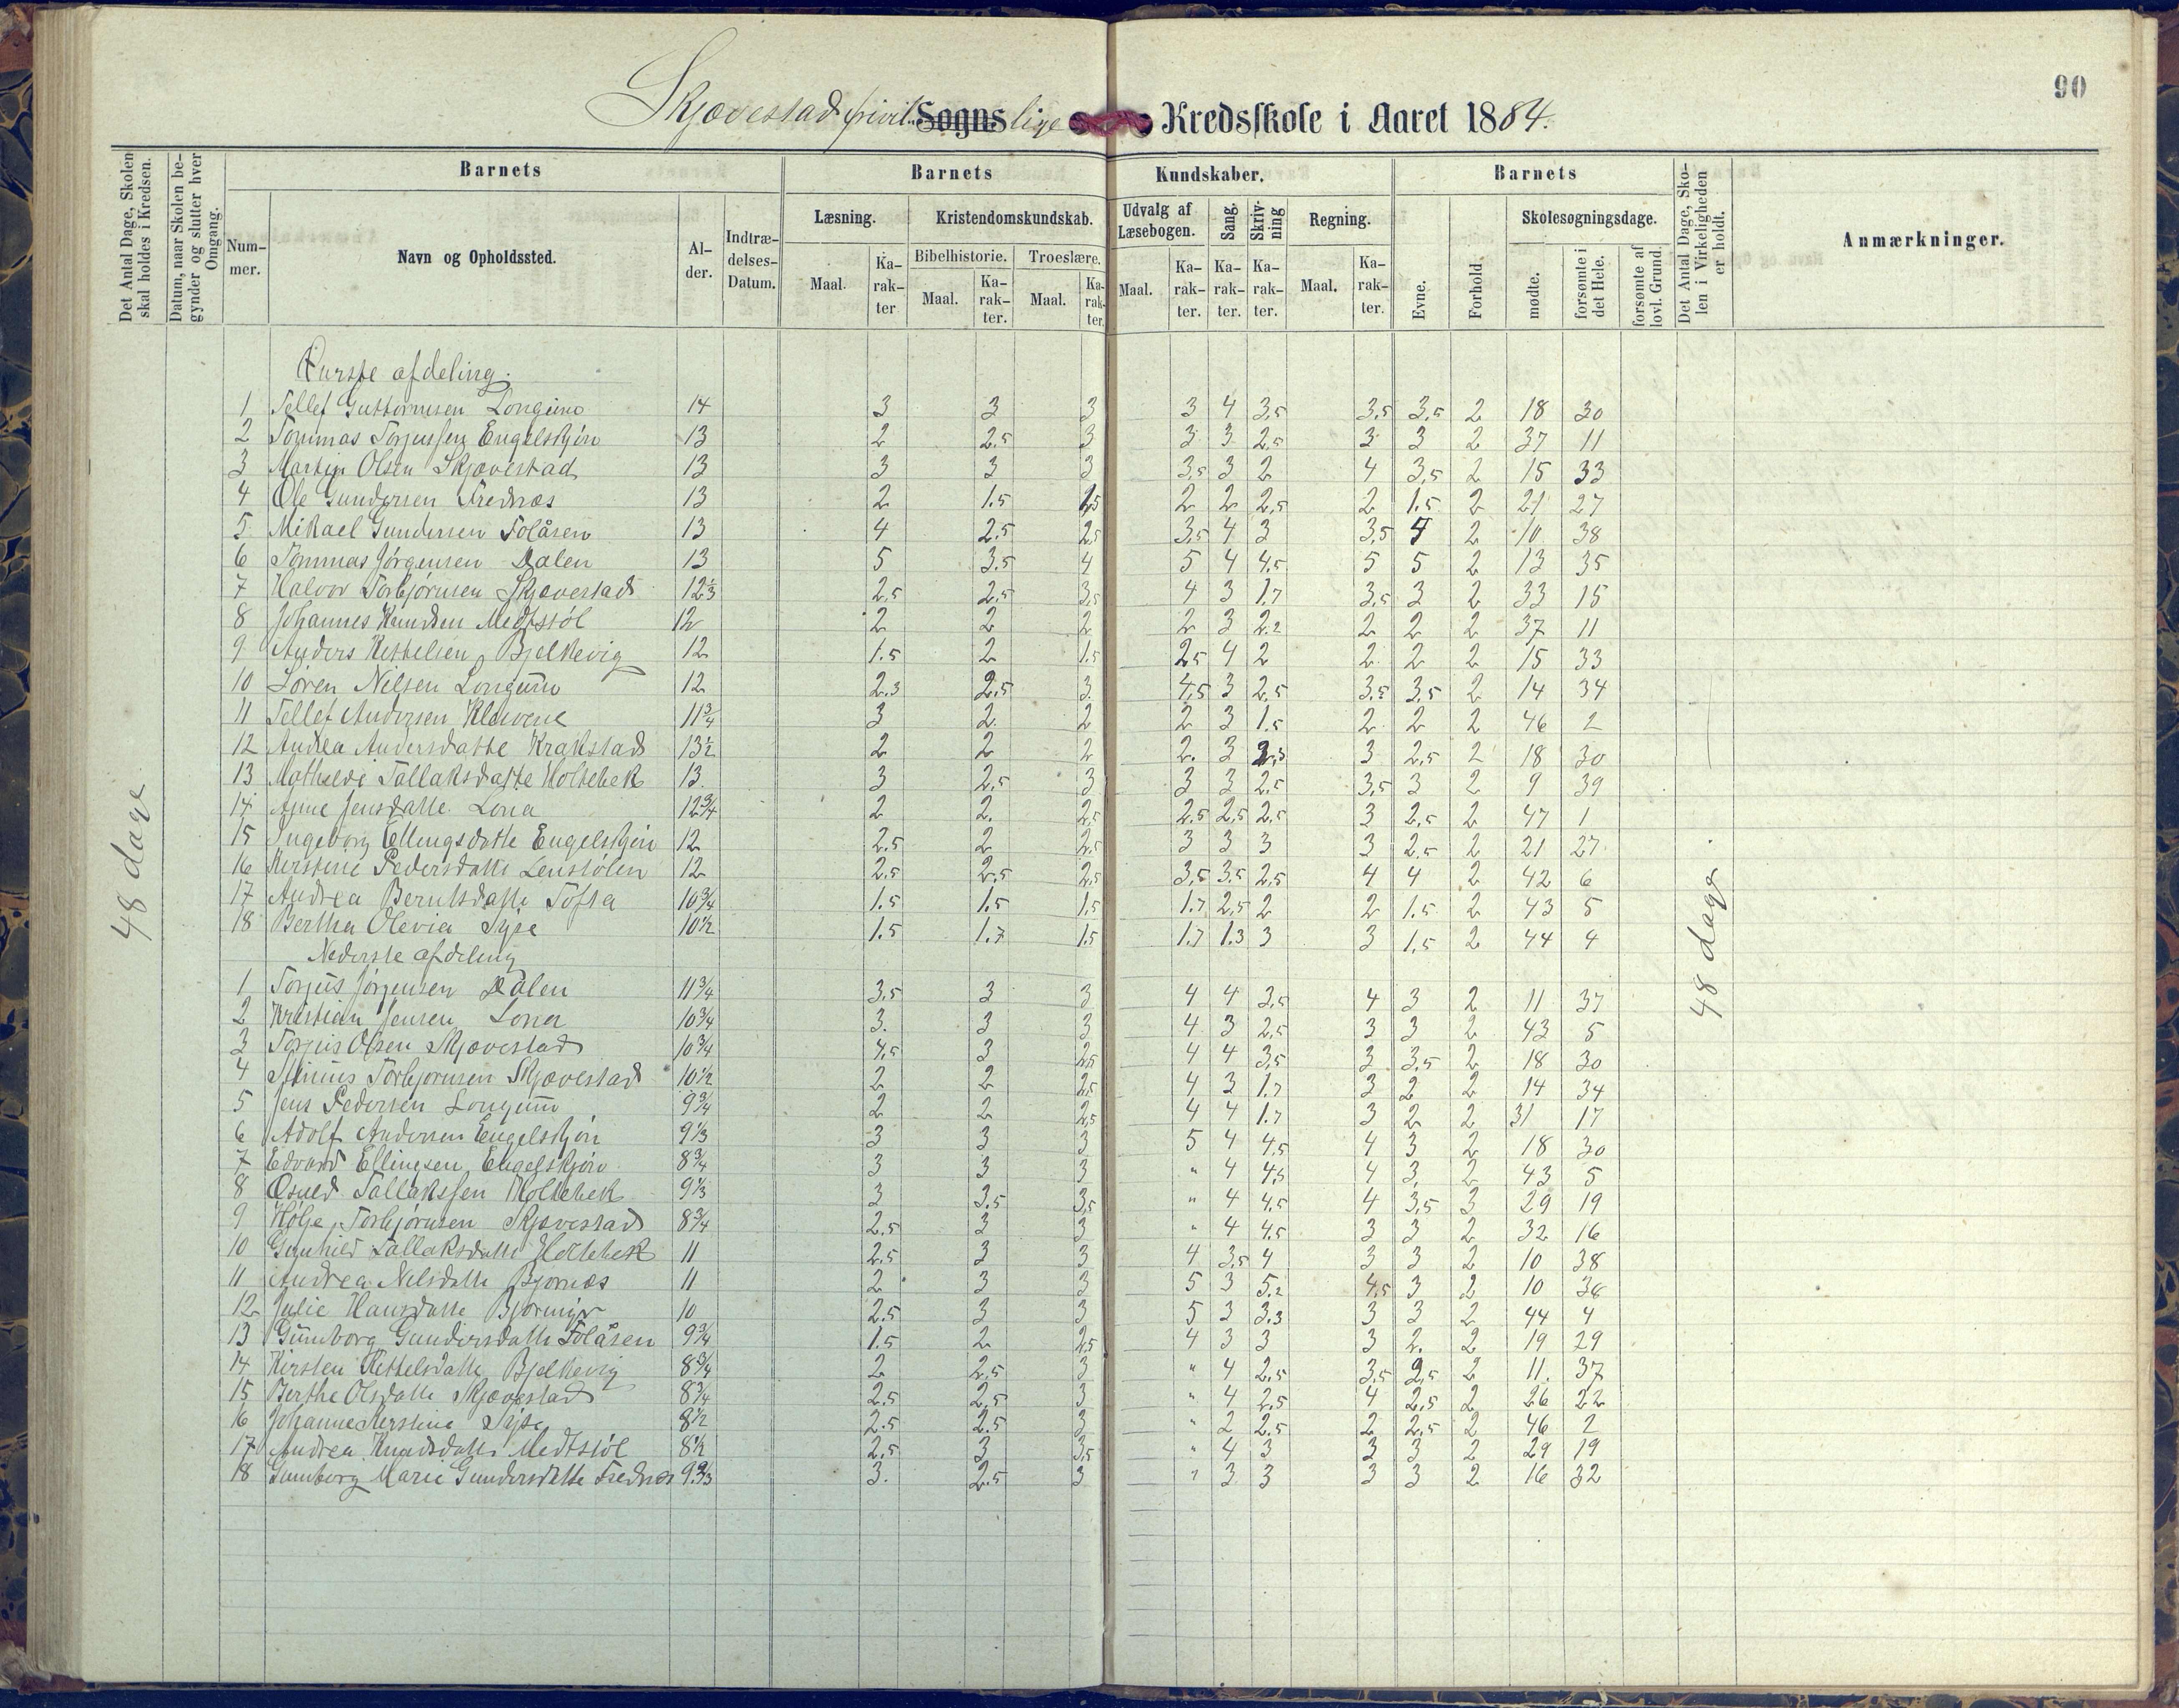 90
Skjævestad frivil- Sogns lige Kredsskole i Aaret 1884.
Det Antal Dage, Skolen skal holdes i Kredsen.
Datum, naar Skolen be-gynder og slutter hver Omgang.
Barnets
Barnets Kundskaber.
Barnets
Det Antal Dage, Sko-len i Virkeligheden er holdt.
Anmærkninger.
Num-mer.
Navn og Opholdssted.
Al-der.
Indtræ-delses-Datum.
Læsning.
Kristendomskundskab.
Udvalg af Læsebogen.
Sang.
Skriv-ning
Regning.
Evne.
Forhold
Skolesøgningsdage.
Bibelhistorie.
Troeslære.
Maal. Ka-rak-ter Maal. Ka-rak-ter. Maal. Ka-rak-ter. Maal. Ka-rak-ter. Ka-rak-ter. Ka-rak-ter. Maal. Ka-rak-ter.
mødte.
forsømte i det Hele.
forsømte af lovl. Grund.
48 dage
48 dage
afdeling.
1 Tellef Guttormsen Longum 14 3 3 3 3 4 3,5 3,5 3,5 2 18 30
2 Tommas Torjussen Engelskjøn 13 2 2,5 3 3 3 2,5 3 3 2 37 11
3 Martin Olsen Skjævestad 13 3 3 3 3,5 3 2 4 3,5 2 15 33
4 Ole Gundersen Frednæs 13 2 1.5 1,5 2 2 2,5 2 1.5 2 21 27
5 Mikael Gundersen Folåsen 13 4 2,5 2,5 3,5 4 3 3,5 4 2 10 38
6 Tommas Jørgensen Dalen 13 5 3.5 4 5 4 4,5 5 5 2 13 35
7 Halvor Torbjørnsen Skjævestad 12⅓ 2,5 2,5 3,5 4 3 1.7 3,5 3 2 33 15
8 Johannes Knudsen Medtstøl 12 2 2 2 2 3 2.2 2 2 2 37 11
9 Anders Kettelsen Bjelkevig 12 1.5 2 1.5 2,5 4 2 2 2 2 15 33
10 Søren Nilsen Longum 12 2.3 2,5 3. 4,5 3 2,5 3,5 3,5 2 14 34
11 Tellef Andersen Kleivene 11¾ 3 2 2 2 3 1.5 2 2 2 46 2
12 Andrea Andersdatte Krakstad 13½ 2 2 2 2. 3 2,3 3 2,5 2 18 30
13 Mathilde Tallaksdatte Holtebek 13 3 2,5 3 3 3 2,5 3,5 3 2 9 39
14 Anne Jensdatte Lona 12¾ 2 2. 2,5 2,5 2,5 2,5 3 2,5 2 47 1
15 Ingeborg Ellingsdatte Engelskjøn 12 2.5 2 2.5 3 3 3 3 2,5 2 21 27
16 Kirstine Pedersdatte Lenstølen 12 2.5 2.5 2,5 3,5 3.5 2,5 4 4 2 42 6
17 Andrea Berntsdatte Tofta 10¾ 1.5 1.5 1,5 1.7 2,5 2 2 1.5 2 43 5
18 Bertha Olevia 10½ 1.5 1.7 1.5 1.7 1.3 3 3 1.5 2 44 4
Nederste afdeling
1 Torjus Jørgensen Dalen 11¾ 3.5 3 3 4 4 3,5 4 3 2 11 37
2 Kristian Jensen Lona 10¾ 3. 3 3 4 3 2,5 3 3 2 43 5
3 Torjus Olsen Skjævestad 10¾ 4,5 3 2,5 4 4 3,5 3 3,5 2 18 30
4 Torbjørnsen Skjævestad 10½ 2 2 2,5 4 3 1.7 3 2 2 14 34
5 Jens Pedersen Longum 9¾ 2 2 2,5 4 4 1.7 3 2 2 31 17
6 Adolf Andersen Engelskjøn 9⅓ 3 3 3 5 4 4,5 4 3 2 18 30
7 Edvard Ellingsen Engelskjøn 8¾ 3 3 3 " 4 4,5 4 3, 2 43 5
8 Osuld Tallakssen Holtebek 9⅓ 3 3.5 3,5 " 4 4.5 4 3,5 3 29 19
9 Hølje Torbjørnsen Skjævestad 8¾ 2.5 3 3 " 4 4.5 3 3 2 32 16
10 Gunhild Tallaksdatte Holtebek 11 2.5 3 3 4 3,5 4 3 3 2 10 38
11 Andrea Nilsdatte Bjornæs 11 2 3 3 5 3 5.2 4,5 3 2 10 38
12 Julie Hansdatte Bjormyr 10 2.5 3 3 5 3 3.3 3 3 2 44 4
13 Gunborg Gundersdatte Folåsen 9¾ 1.5 2 2,5 4 3 3 3 2. 2 19 29
14 Kirsten Kettelsdatte Bjelkevig 8¾ 2 2,5 3 " 4 2,5 3,5 2,5 2 11. 37
15 Berthe Olsdatte Skjævestad 8¾ 2.5 2,5 3 " 4 2.5 4 2,5 2 26 22
16 Johanne Kirstine 8½ 2.5 2.5 3 " 2 2.5 2 2,5 2 46 2
17 Andrea Knudsdatte Medtstøl 8½ 2,5 3 3,5 " 4 3 3 3 2 29 19
18 Gunborg Marie Gundersdatte Frednæs 9⅔ 3. 2.5 3 " 3 3 3 3 2 16 32